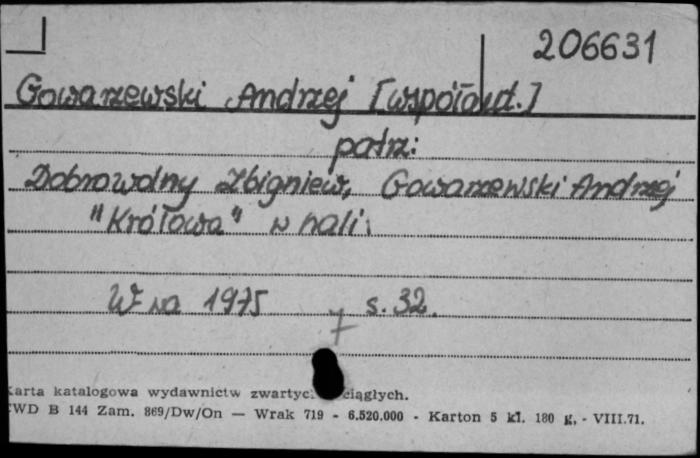 206631
Gowarzewski Andrzej [współaut.]
patrz:
Dobrowolny Zbigniew, Gowarzewski Andrzej
"Królowa" w hali.
W-wa 1975 s. 32.
7
Karta katalogowa wydawnictw zwartych ciągłych.
CWD B 144 Zam. 869/Dw/On — Wrak 719 - 6.520.000 - Karton 5 kl. 180 g, - VIII.71.